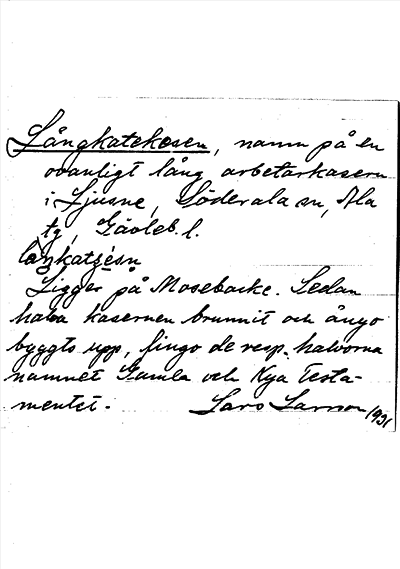 Långkatekesen, namn på en
ovanligt lång arbetarkasern
i Ljusne, Söderala sn, Ala
tg, Gävleb. l.
laŋkatsésn
Ligger på Mosebacke. Sedan
halva kasernen brunnit och ånyo
byggts upp, fingo de resp. halvorna
namnet Gamla och Nya Testa-
mentet. Lars Larsson 1931